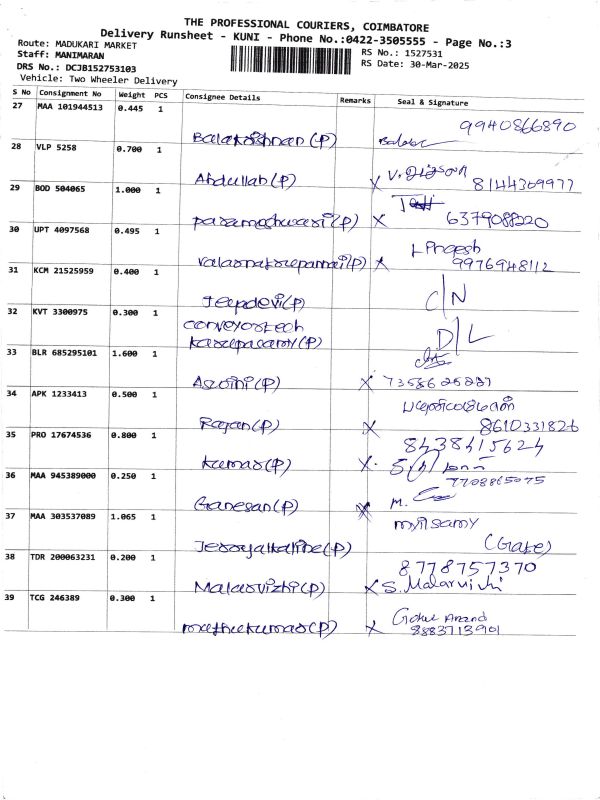 THE PROFESSIONAL COURIERS, COIMBATORE
Delivery Runsheet - KUNI - Phone No.:0422-3505555 - Page No.:3
Route: MADUKARI MARKET
RS No.: 1527531
Staff: MANIMARAN
RS Date: 30-Mar-2025
DRS No.: DCJB152753103
Vehicle: Two Wheeler Delivery
S No Consignment No Weight PCS Consignee Details Remarks Seal & Signature
27 MAA 101944513 0.445 1
Balakrishnan (P) 9940866890
28 VLP 5258 0.700 1
Abdullah (P) X 8144309977
29 BOD 504065 1.000 1
parameshwari (P) X 6379088220
30 UPT 4097568 0.495 1
X 9976948112
31 KCM 21525959 0.400 1
Jeepdevi (P) C/N
32 KVT 3300975 0.300 1
conveyortech
D/L
33 BLR 685295101 1.600 1
Aswini (P) X
34 APK 1233413 0.500 1
Rajan (P) X 8610331826
35 PRO 17674536 0.800 1
8438415624
Kumar (P) X
36 MAA 945389000 0.250 1
7708865075
Ganesan (P) M.
37 MAA 303537089 1.065 1
mylsamy
(Gate)
38 TDR 200063231 0.200 1
8778757370
Malarvizhi (P) X S. Malarvizhi
39 TCG 246389 0.300 1
Gokul Anand
muthukumar (P) X 8883713901